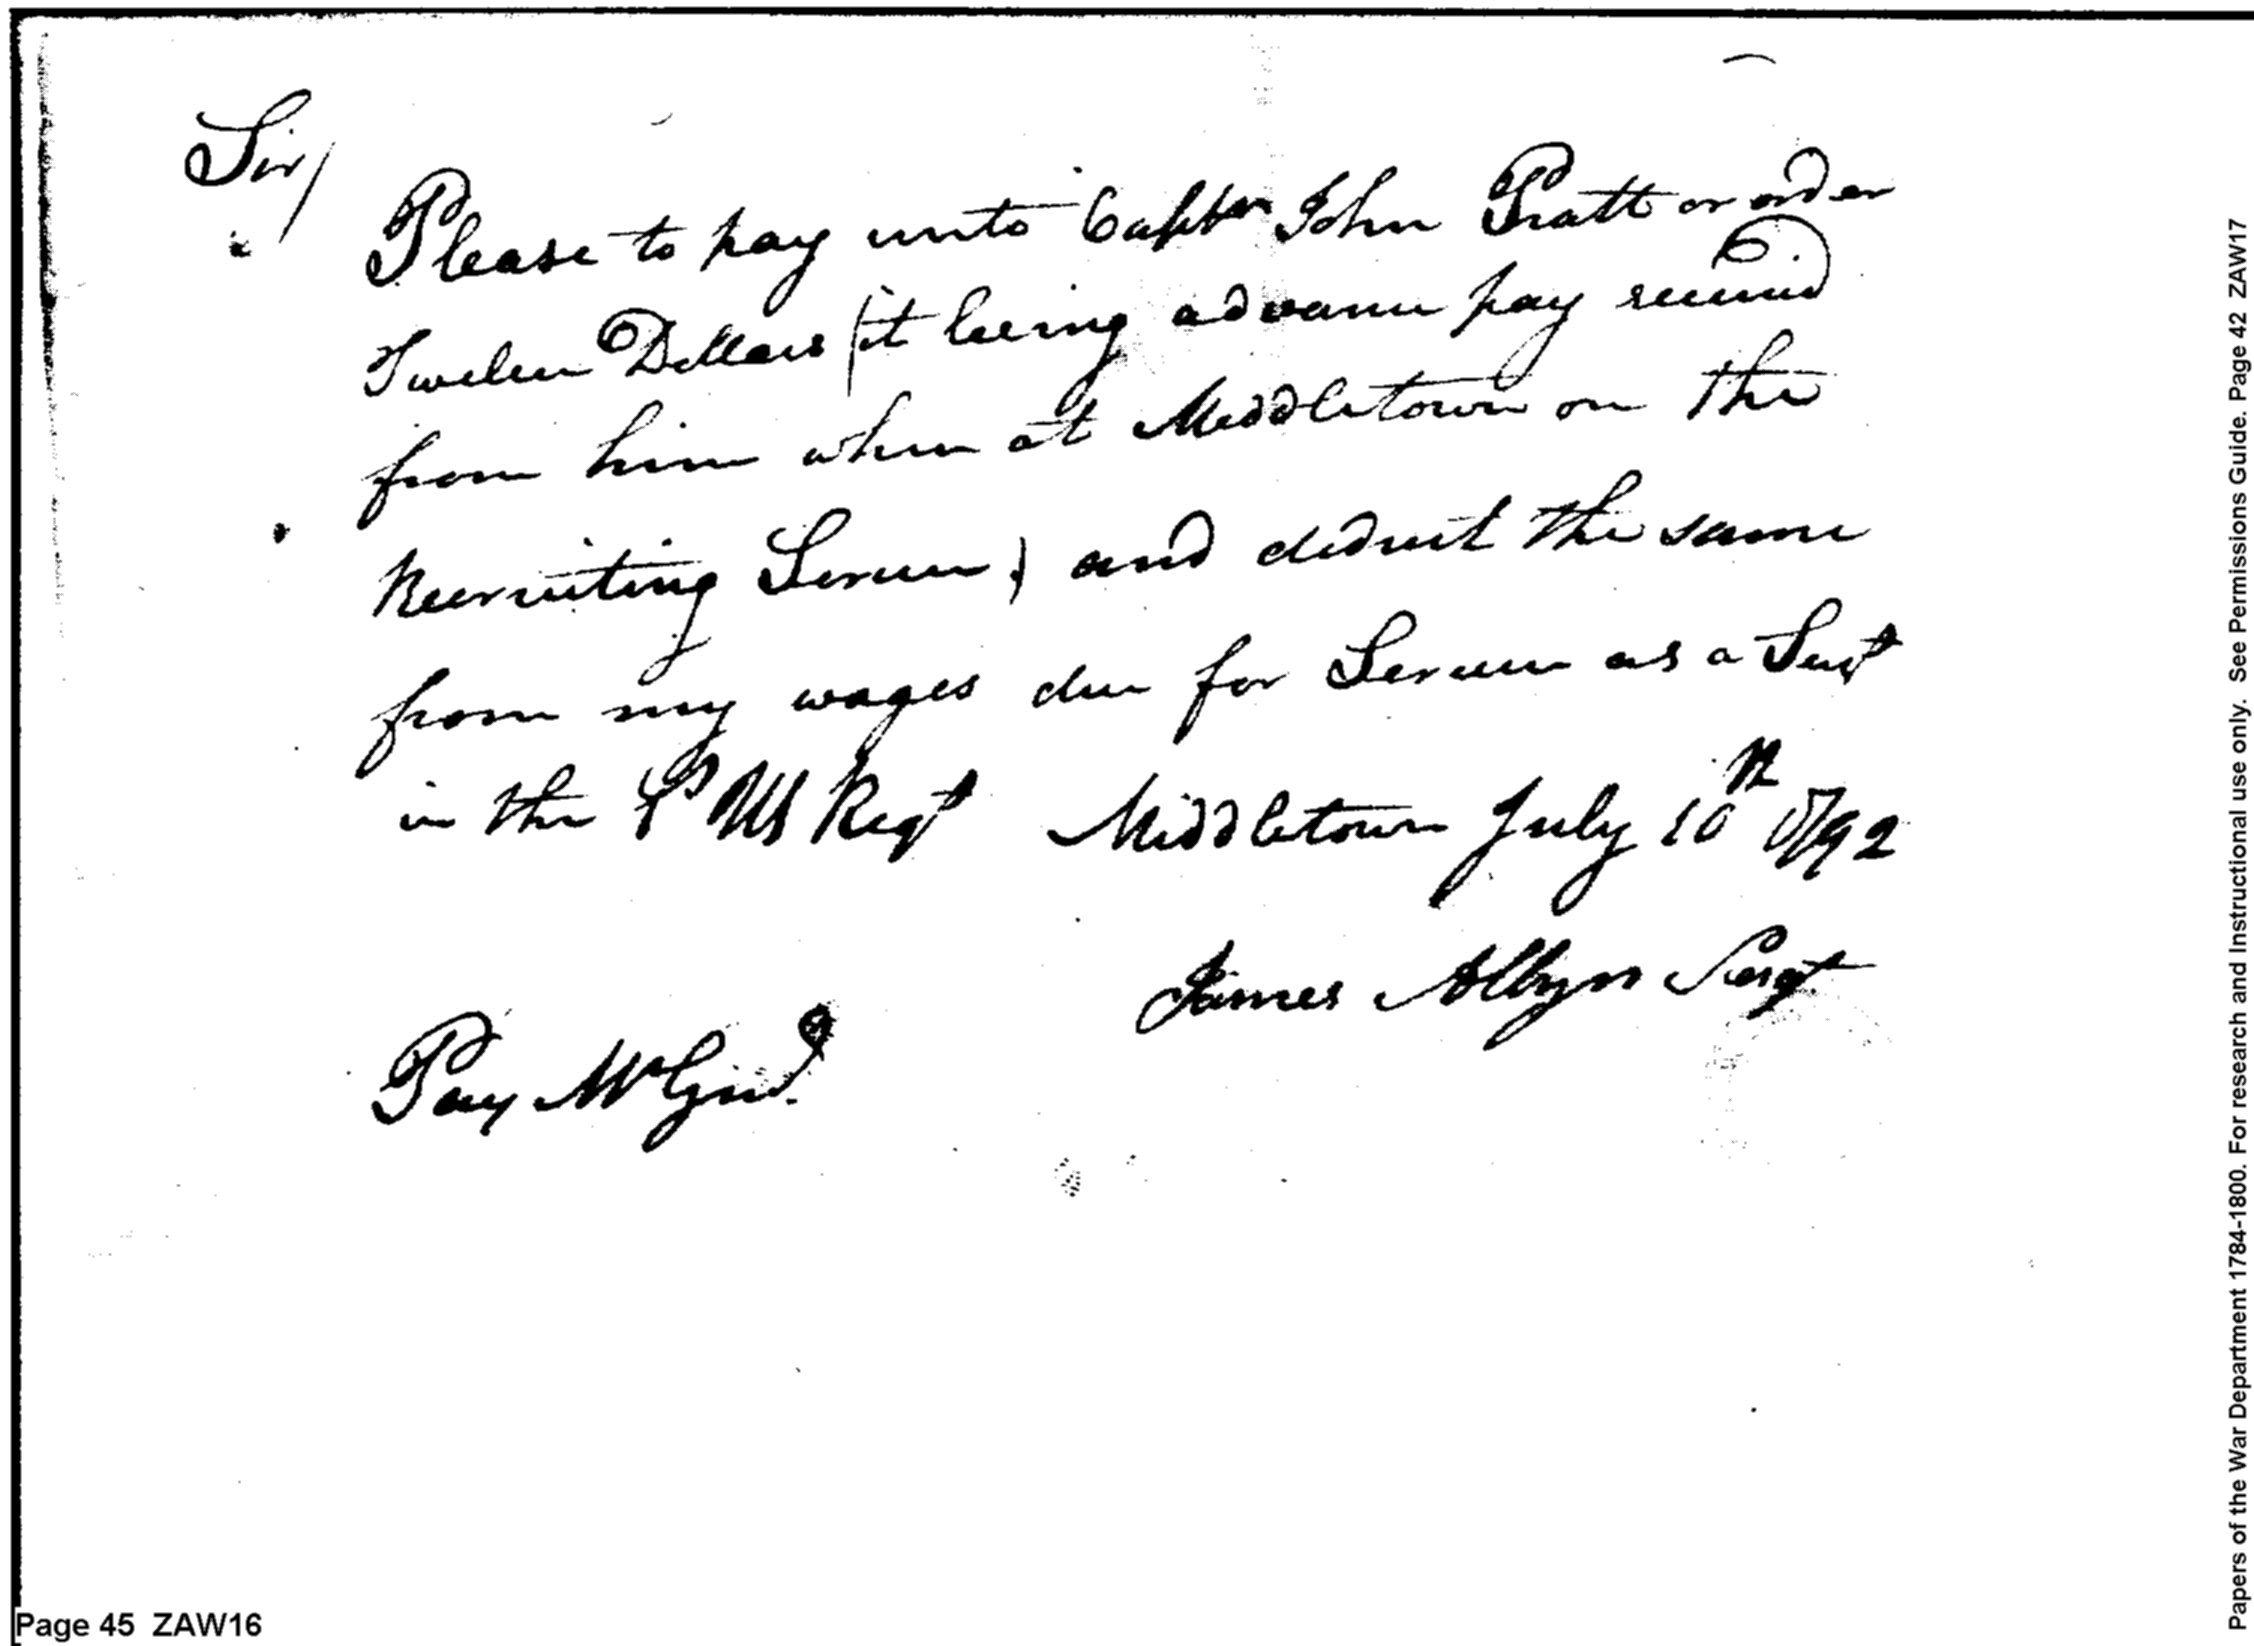 Sir/
Please to pay unto Captn John Pratt or order
Twelve Dollars (it being advance pay received
from him when at Middletown on the
Recruiting Service) and deduct the same
from my wages due for Service as a Sert
in the US Regt Middletown July 10th 1792
James Allyn Sergt
Pay Mr Genl
Page 45 ZAW16
Papers of the War Department 1784-1800. For research and Instructional use only. See Permissions Guide. Page 42 ZAW17